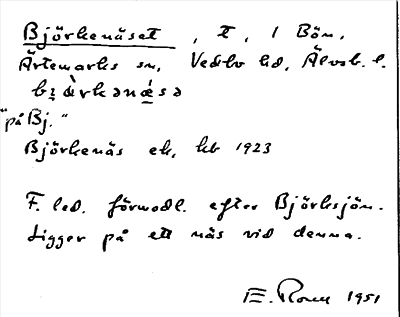 Björkenäset, t, 1 Bön,
Ärtemarks sn, Vedbo hd, Älvsb. l.
bjằrkənǽsə
"på Bj."
Björkenäs ek, kb 1923
F. led. förmodl. efter Björksjön.
Ligger på ett näs vid denna.
E. Rosen 1951